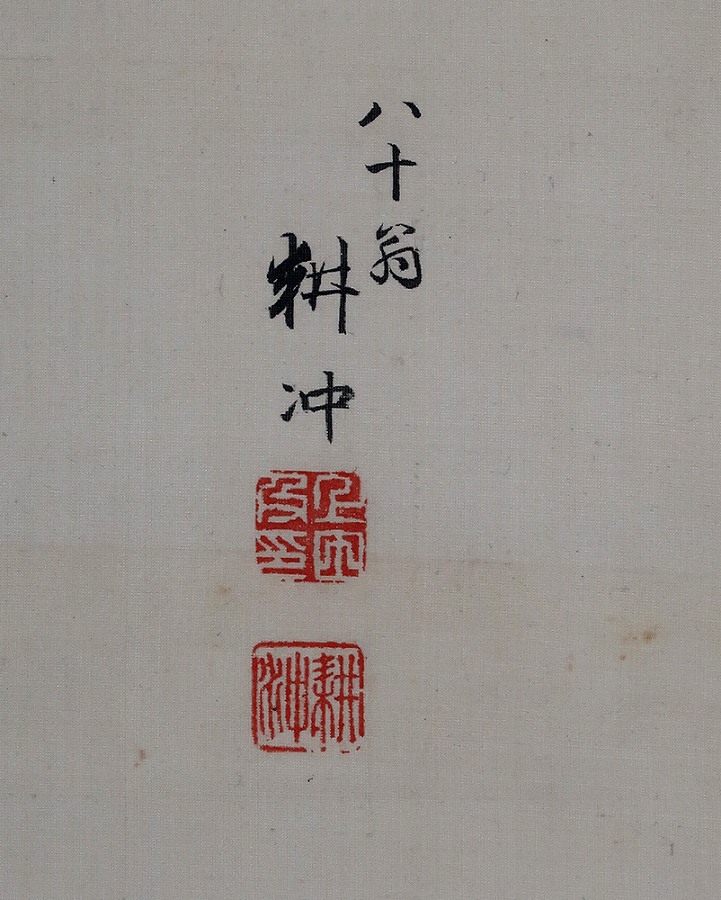 八十翁
耕冲
耕沖